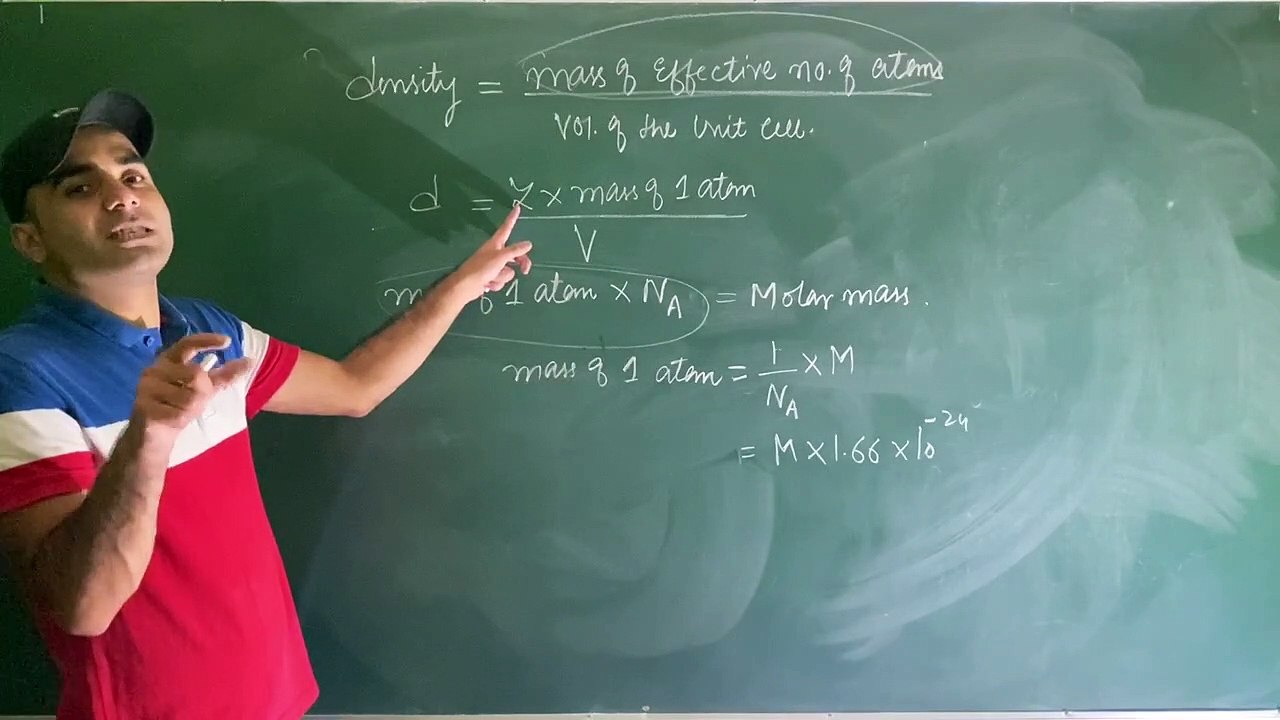 density = mass of Effective no. of atoms
Vol. of the Unit Cell.
d = Z × mass of 1 atom
V
1 atom × N_A = Molar mass.
mass of 1 atom = 1/N_A × M
= M × 1.66 × 10^-24